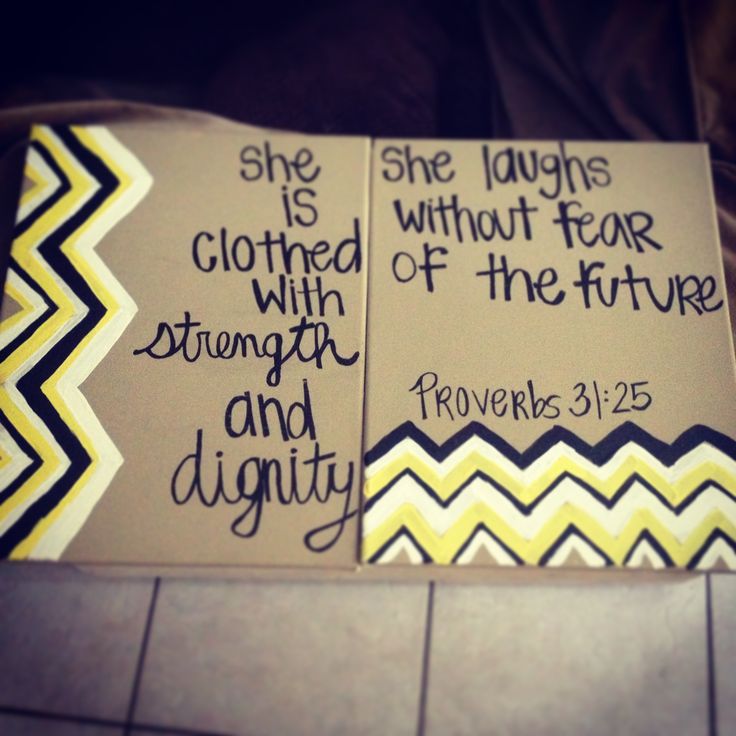 she
is
clothed
with
strength
and
dignity
she laughs
without fear
of the future
Proverbs 31:25